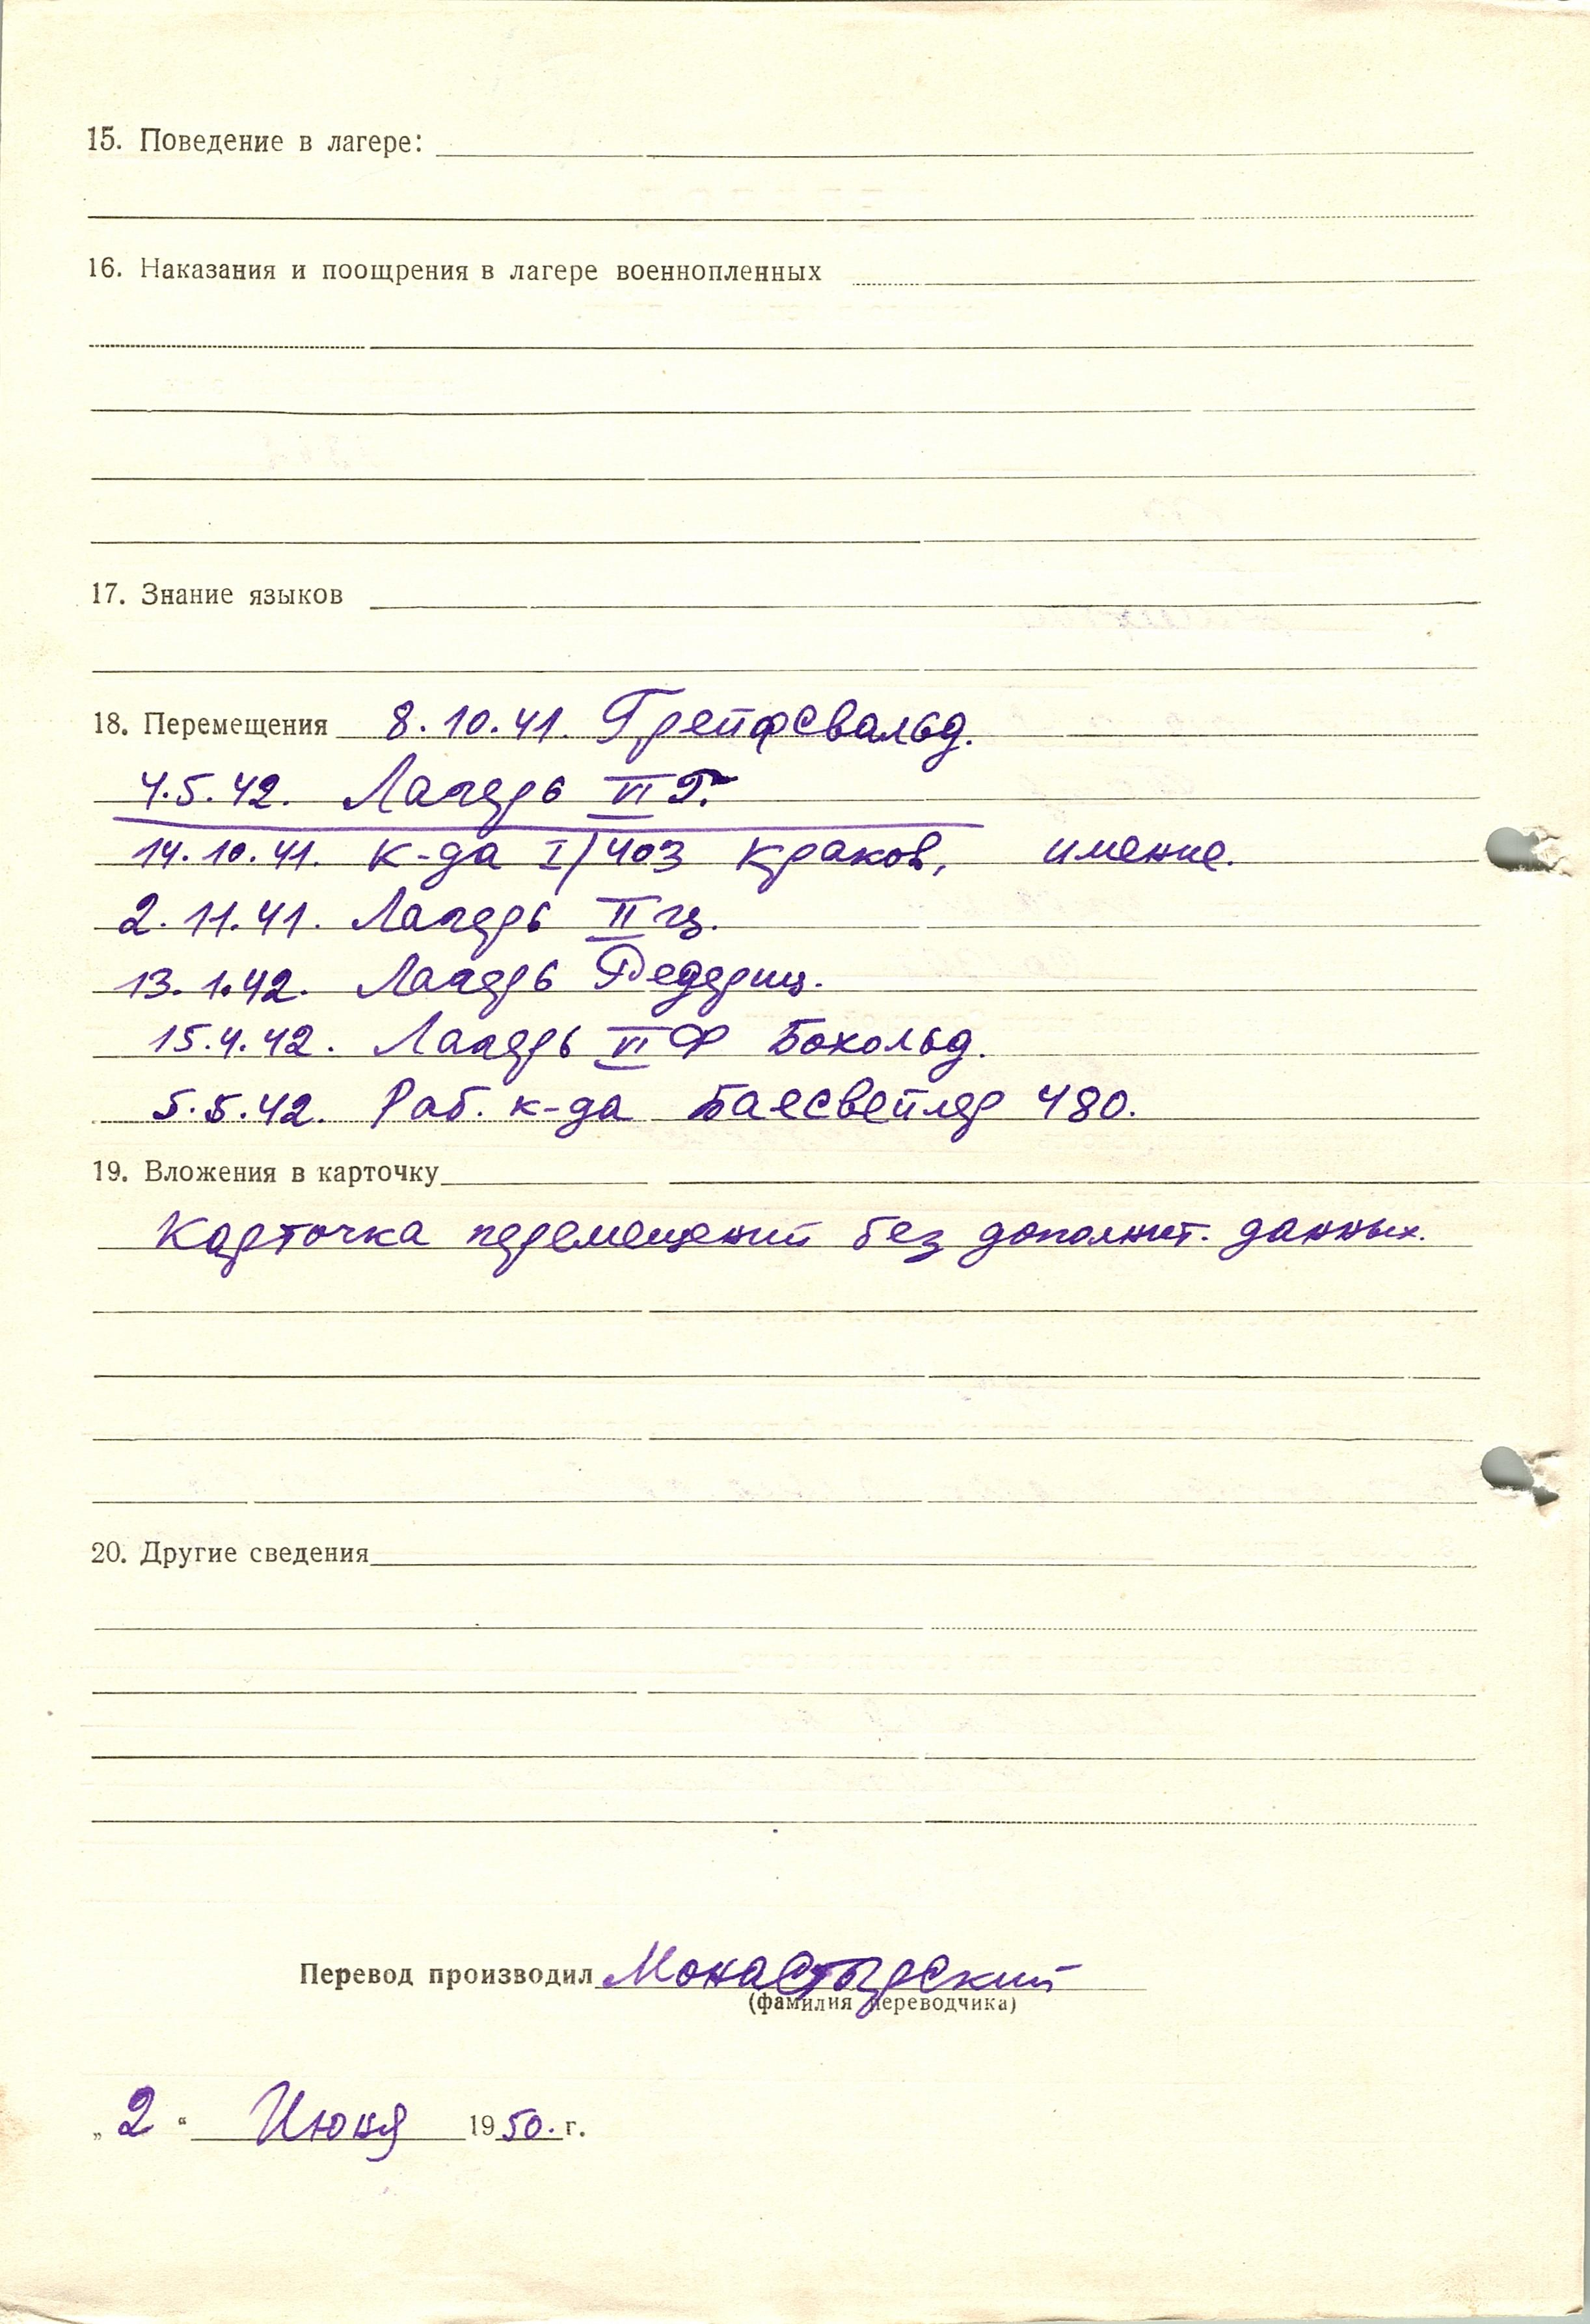 15. Поведение в лагере:
16. Наказания и поощрения в лагере военнопленных
17. Знание языков
18. Перемещения 8.10.41. Грейфсвальд.
4.5.42. Лагерь VI Г.
14.10.41. к-да I/403 Краков, имение.
2.11.41. Лагерь II Ц.
13.1.42. Лагерь Федериц.
15.4.42. Лагерь VI Ф Бохольд.
5.5.42. Раб. к-да Баесвейлер 480.
19. Вложения в карточку
Карточка перемещений без дополнит. данных.
20. Другие сведения
Перевод производил Монастырский
(фамилия переводчика)
„2“ Июня 1950. г.